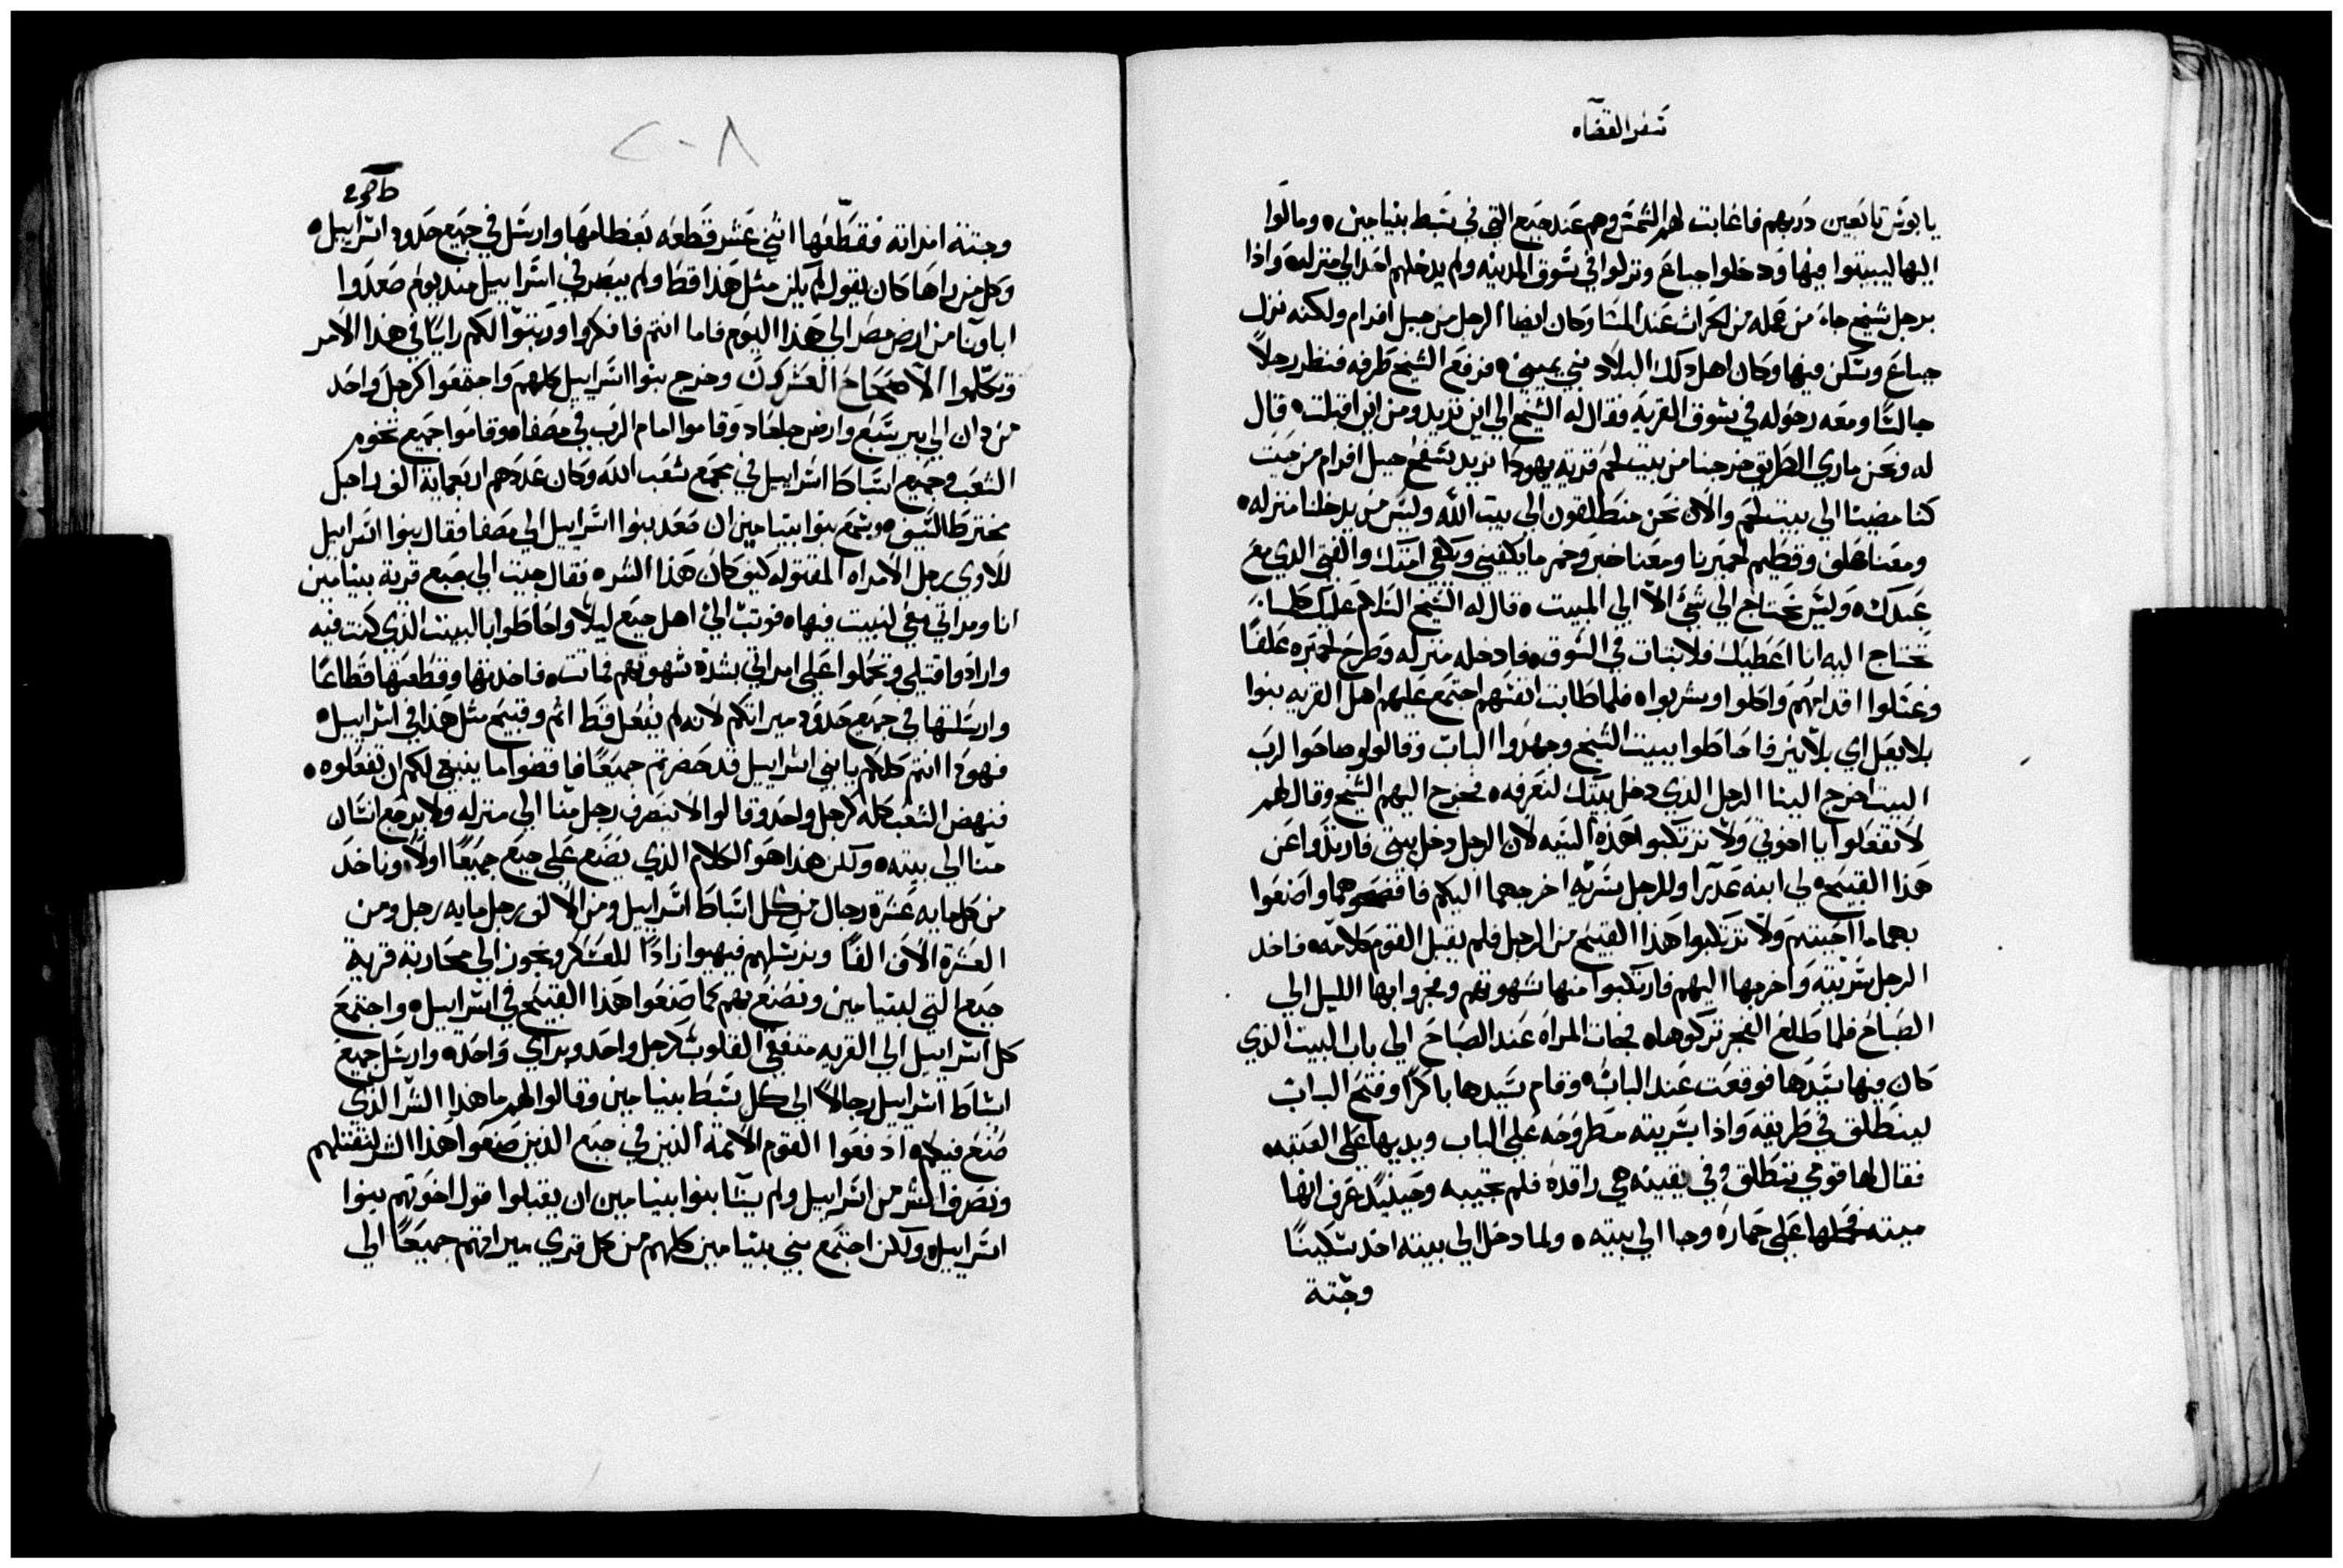 سفر القضاه
يابوس تابعين دربهم فاغابت لهم الشمس وهم عند جبع التي في سبط بنيامين ومالوا
اليها ليبيتوا فيها ودخلوا جباع ونزلوا في سوق المدينه ولم يدخلهم احد الي منزله واذا
برجل شيخ جاء من عمله من الحراث عند المسا وكان ايضا الرجل من جبل افرام ولكنه نزل
جباع وسكن فيها وكان اهل ذلك البلاد بني يميني فرفع الشيخ طرفه فنظر رجلاً
جالسًا ومعه رحوله في سوق القريه فقال له الشيخ الي اين تريد ومن اين اقبلت قال
له نحن ماري الطريق خرجنا من بيت لحم قرية يهودا نريد سفح جبل افرام من حيث
كنا مضينا الي بيت لحم والان نحن منطلقون الي بيت الله وليس من يدخلنا منزله
ومعنا علف وقطيم لحميرنا ومعنا خبز وخمر ما يكفيني ويكفي امتك والفتي الدي مع
عبدك وليس نحتاج الي شيئ الا الي المبيت قال له الشيخ السلام عليك كلما
تحتاج اليه انا اعطيك فلا تبات في السوق فادخله منزله وطرح لحميره علفًا
وغسلوا اقدامهم واكلوا وشربوا فلما طابت انفسهم اجتمع عليهم اهل القريه بنوا
بلابعل اي بلا نير فاحاطوا ببيت الشيخ وجهدوا الباب وقالوا وصاحوا لرب
البيت اخرج الينا الرجل الذي دخل بيتك لنعرفه فخرج اليهم الشيخ وقال لهم
لا تفعلوا يا اخوتي ولا ترتكبوا هذه السيه لان الرجل دخل بيتي فارتدوا عن
هذا القبيح لي ابنه عدرا وللرجل سريه اخرجهما اليكم فافضحوهما واصنعوا
بهما ما احببتم ولا ترتكبوا هذا القبيح من الرجل فلم يقبل القوم كلامه فاخد
الرجل سريته واخرجها اليهم فارتكبوا منها شهوتهم وفجروا بها الليل الي
الصباح فلما طلع الفجر تركوها فجات المراه عند الصباح الي باب البيت الذي
كان فيها سيدها فوقعت عند الباب وقام سيدها باكرًا وفتح الباب
لينطلق في طريقه واذا بسريته مطروحه علي الباب ويديها علي العتبه
فقال لها قومي ننطلق وفي يقينه هي راقده فلم تجيبه وحينيد عرف انها
ميته فحملها علي حماره وجا الي بيته ولما دخل الي بيته اخد سكينًا
وجثة
٢٠٨
وجتة امراته فقطعها اثني عشر قطعه بعظامها وارسل في جميع حدود اسراييل
وكل من راها كان يقول لم يكن مثل هذا قط ولم يبصر في اسراييل مند يوم صعدوا
اباونا من ارض مصر الي هذا اليوم فاما انتم فافكروا ورتبوا لكم رايًا في هذا الامر
وتكلموا الاصحاح العشرون وخرج بنوا اسراييل كلهم واجتمعوا كرجل واحد
من دان الي بير سبع وارض جلعاد وقاموا امام الرب في مصفاه وقاموا جميع تخوم
الشعب وجميع اسباط اسراييل في مجمع شعب الله وكان عددهم اربعماية الف راجل
مخترط السيف وسمع بنوا بنيامين ان صعد بنوا اسراييل الي مصفا فقال بنوا اسراييل
للاوي رجل الامراه المقتوله كيف كان هذا الشر فقال جيت الي جبع قرية بنيامين
انا ومراتي معي لنبيت فيها فوتب اليّ اهل جبع ليلًا واحاطوا بالبيت الذي كنت فيه
وارادوا قتلي وتحملوا علي امراتي بشدة شهوتهم فماتت فاخدتها وقطعتها قطاعًا
وارسلتها في جميع حدود ميراتكم لانه لم يفعل قط اثم وقبيح مثل هذا في اسراييل
فهودا انتم كلكم يا بني اسراييل قد حضرتم جميعًا فاقضوا ما ينبغي لكم ان تفعلوه
فنهض الشعب كله كرجل واحد وقالوا لا ينصرف رجل منا الي منزله ولا يرجع انسان
منا الي بيته ولكن هذا هو الكلام الذي يصنع علي جبع جميعًا اولًا وناخد
من كل مايه عشره رجال من كل اسباط اسراييل ومن الالف رجل مايه رجل ومن
العشرة الاف الفًا ونرسلهم فيهيوا زادًا للعسكر ونجوز الي محاربة قرية
جبع التي لبنيامين ونصنع بهم كما صنعوا هذا القبيح في اسراييل واجتمع
كل اسراييل الي القريه متفقي القلوب كرجل واحد وبراي واحده وارسل جميع
اسباط اسراييل رجالًا الي كل سبط بنيامين وقالوا لهم ما هذا الشر الذي
صنع فيكم ادفعوا القوم الاثمة الذين في جبع الذين صنعوا هذا الشر لنقتلهم
ونصرف الشر من اسراييل ولم يشا بنوا بنيامين ان يقبلوا قول اخوتهم بنوا
اسراييل ولكن اجتمع بني بنيامين كلهم من كل قري ميراتهم جميعًا الي